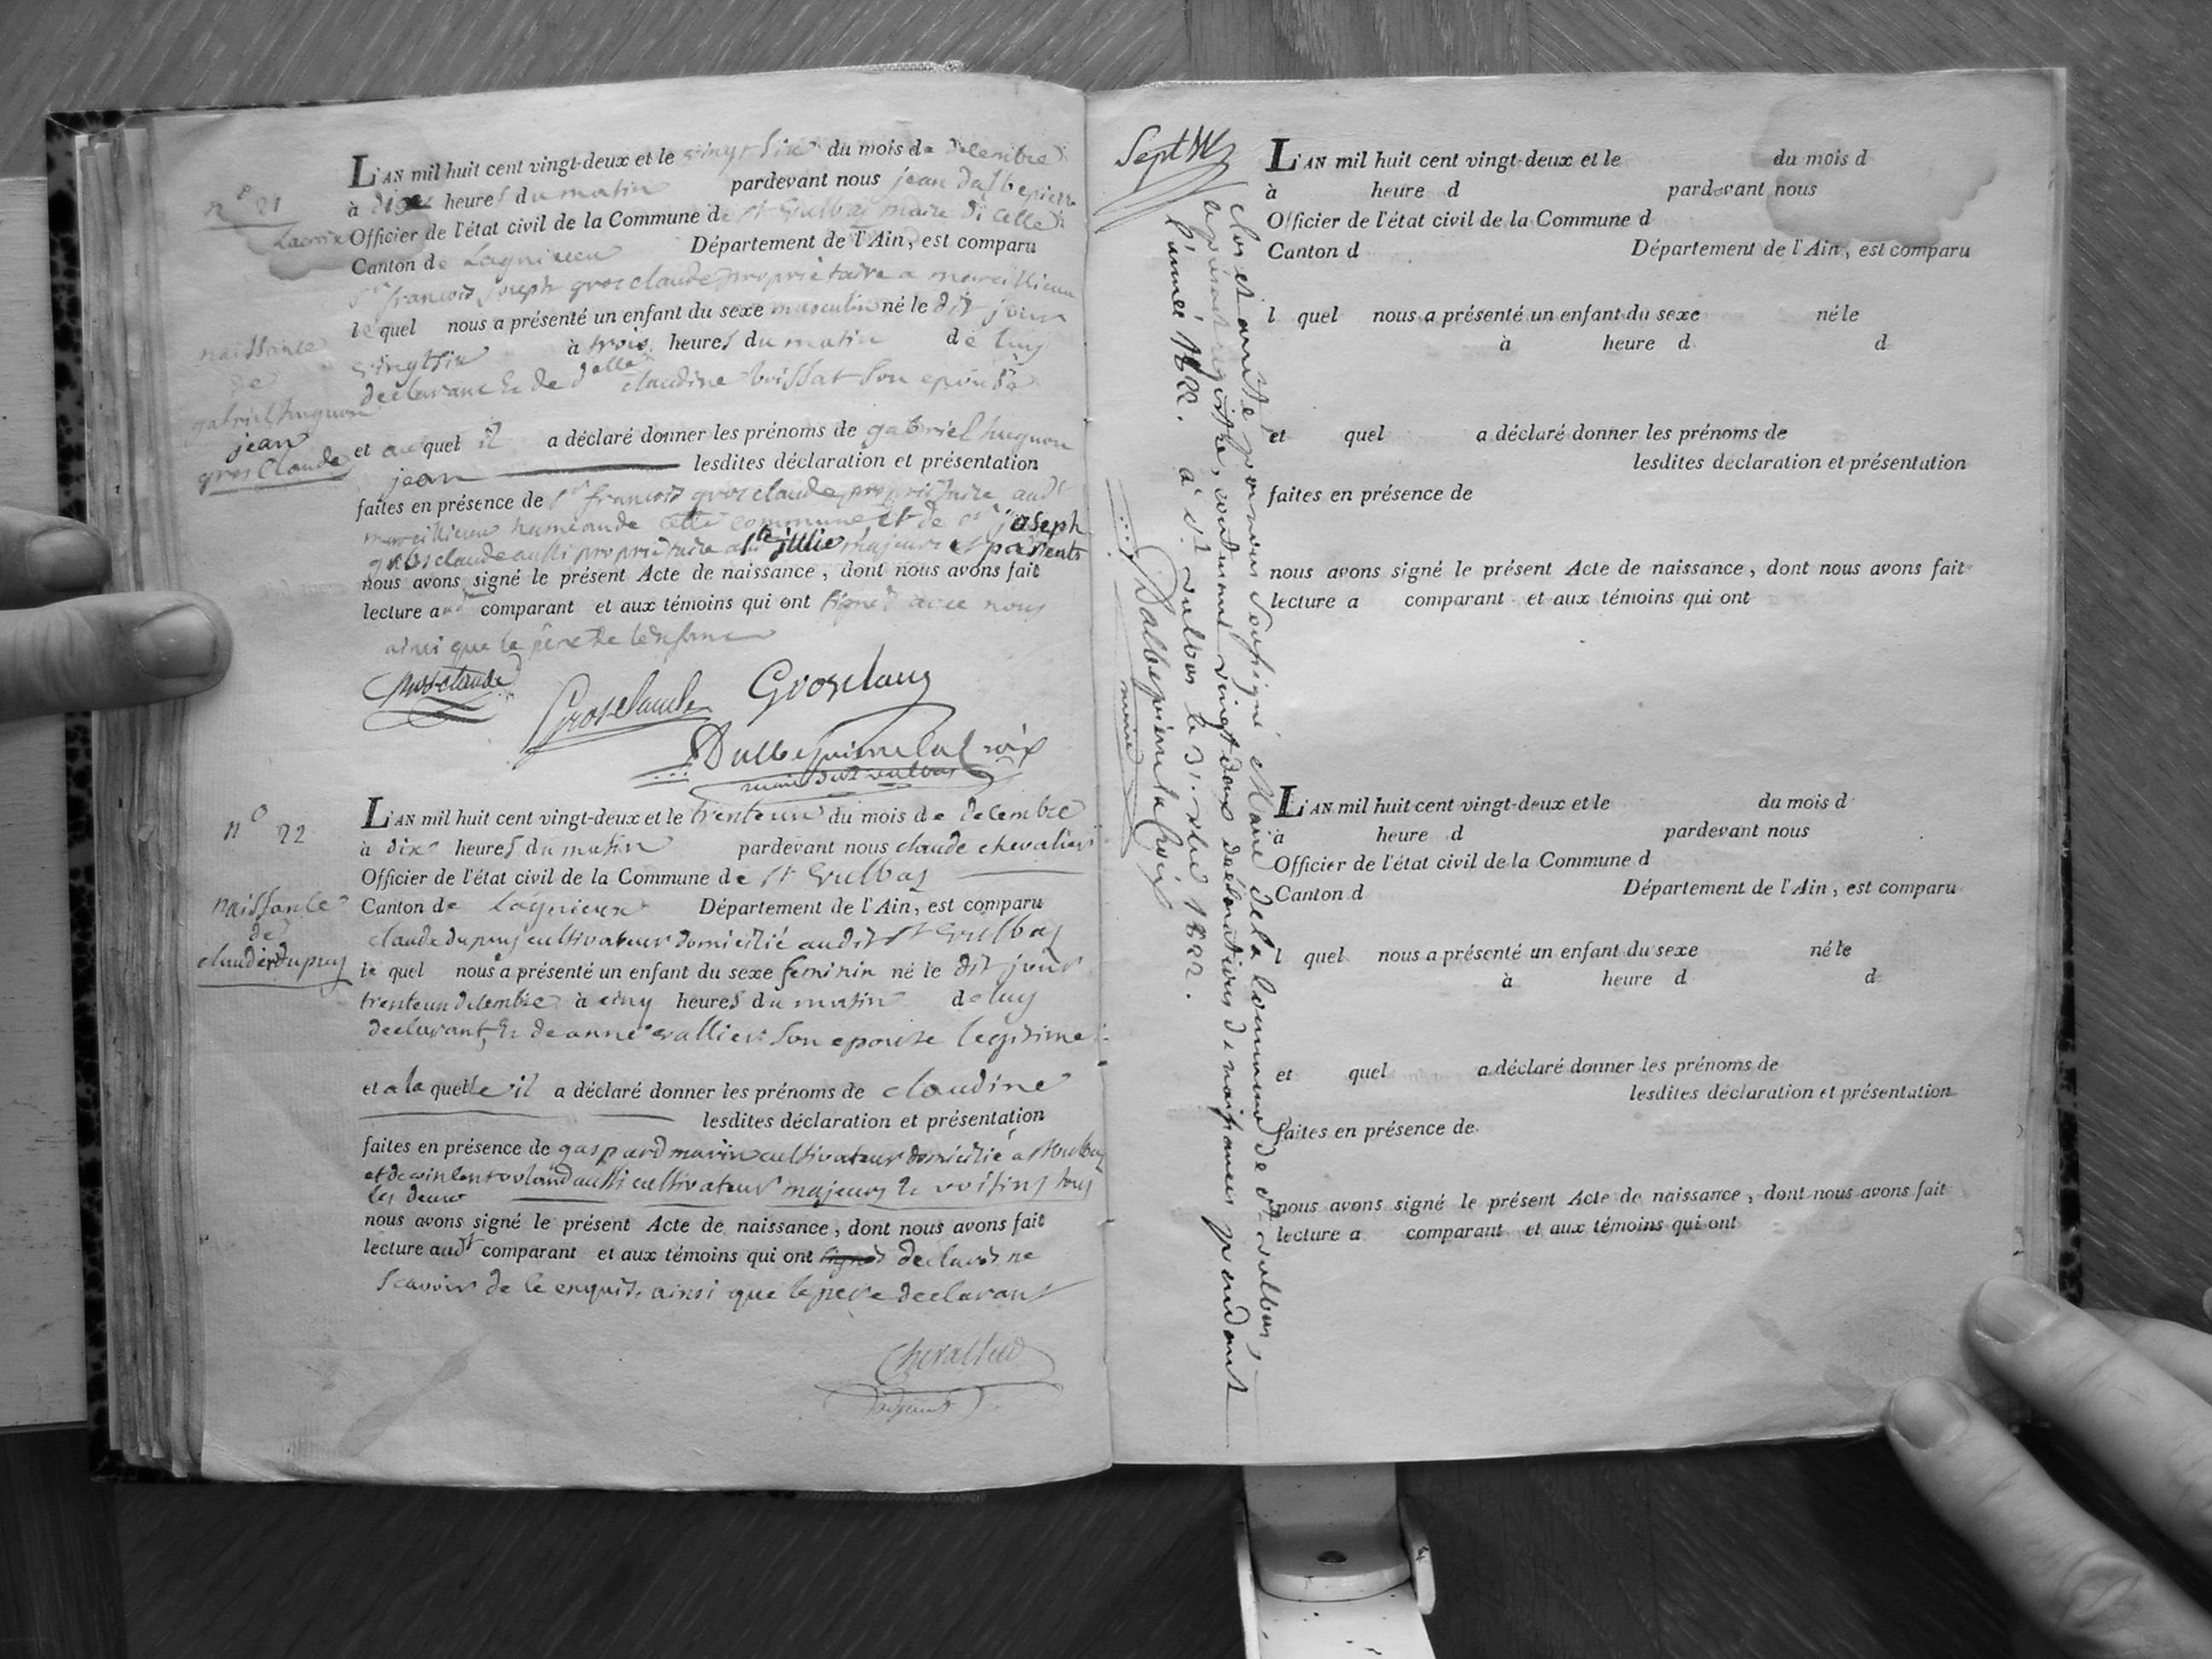 n° 21
Lacroix
L'AN mil huit cent vingt-deux et le vingt six du mois de decembre
à dix heures du matin pardevant nous jean dalbepierre
Officier de l'état civil de la Commune de st Vulbas maire di celle
Canton de Lagnieux Département de l'Ain, est comparu
sr françois joseph grosclaude propriétaire a marcillieux
le quel nous a présenté un enfant du sexe masculin né le dit jour
vingt six à trois heures du matin de luy
declarant & de dlle claudine boissat son epouse
naissance
de
gabriel hugnon
jean
grosclaude
et au quel il a déclaré donner les prénoms de gabriel hugnon
jean lesdites déclaration et présentation
faites en présence de sr françois grosclaude propriétaire audt
marcillieux hameau de cette commune et de sr joseph
grosclaude aussi propriétaire majeurs et parents
nous avons signé le présent Acte de naissance, dont nous avons fait
lecture audt comparant et aux témoins qui ont signé avec nous
ainsi que le père de lenfant
Grosclaude
Grosclaude Grosclaude
Dalbepierre Lacroix
maire de st vulbas
n° 22
L'AN mil huit cent vingt-deux et le trente un du mois de decembre
à dix heures du matin pardevant nous claude chevalier
Officier de l'état civil de la Commune de st Vulbas
Canton de Lagnieux Département de l'Ain, est comparu
claude dupuy cultivateur domicilié audit st Vulbas
naissance
de
claudine dupuy
le quel nous a présenté un enfant du sexe feminin né le dit jour
trente un decembre à cinq heures du matin de luy
declarant, & de anne vallier son epouse legitime
et a la quelle il a déclaré donner les prénoms de claudine
lesdites déclaration et présentation
faites en présence de gaspard marin cultivateur domicilié a st Vulbas
et de vincent roland aussi cultivateur majeurs & voisins tous
les deux
nous avons signé le présent Acte de naissance, dont nous avons fait
lecture audt comparant et aux témoins qui ont signé declaré ne
scavoir de ce enquis. ainsi que le pere declarant
Chevallier
Sept
Clos et arrêté par nous soussigné Maire de la Commune de st vulbas,
le présent registre, contenant vingt deux déclarations de naissances pendant
l'année 1822. à st vulbas le 31 xbre 1822.
Dalbepierre Lacroix
maire
L'AN mil huit cent vingt-deux et le du mois d
à heure d pardevant nous
Officier de l'état civil de la Commune d
Canton d Département de l'Ain, est comparu
l quel nous a présenté un enfant du sexe né le
à heure d d
et quel a déclaré donner les prénoms de
lesdites déclaration et présentation
faites en présence de
nous avons signé le présent Acte de naissance, dont nous avons fait
lecture a comparant et aux témoins qui ont
L'AN mil huit cent vingt-deux et le du mois d
à heure d pardevant nous
Officier de l'état civil de la Commune d
Canton d Département de l'Ain, est comparu
l quel nous a présenté un enfant du sexe né le
à heure d d
et quel a déclaré donner les prénoms de
lesdites déclaration et présentation
faites en présence de
nous avons signé le présent Acte de naissance, dont nous avons fait
lecture a comparant et aux témoins qui ont